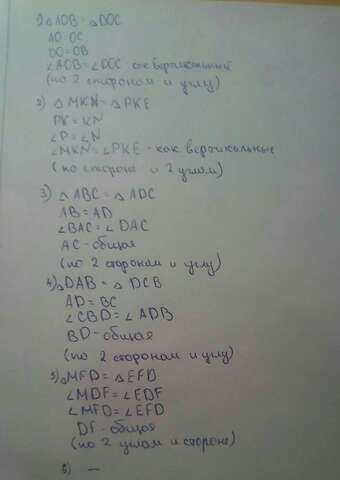 1) △AOB = △DOC
AO=OC
DO=OB
∠AOB=∠DOC как вертикальный
(по 2 сторонам и углу)
2) △MKN = △PKE
PK = KN
∠P=∠N
∠MKN=∠PKE - как вертикальные
(по стороне и 2 углам)
3) △ABC = △ADC
AB=AD
∠BAC=∠DAC
AC-общая
(по 2 сторонам и углу)
4) △DAB = △DCB
AD=BC
∠CBD=∠ADB
BD-общая
(по 2 сторонам и углу)
5) △MFD=△EFD
∠MDF=∠EDF
∠MFD=∠EFD
DF-общая
(по 2 углам и стороне)
6) —